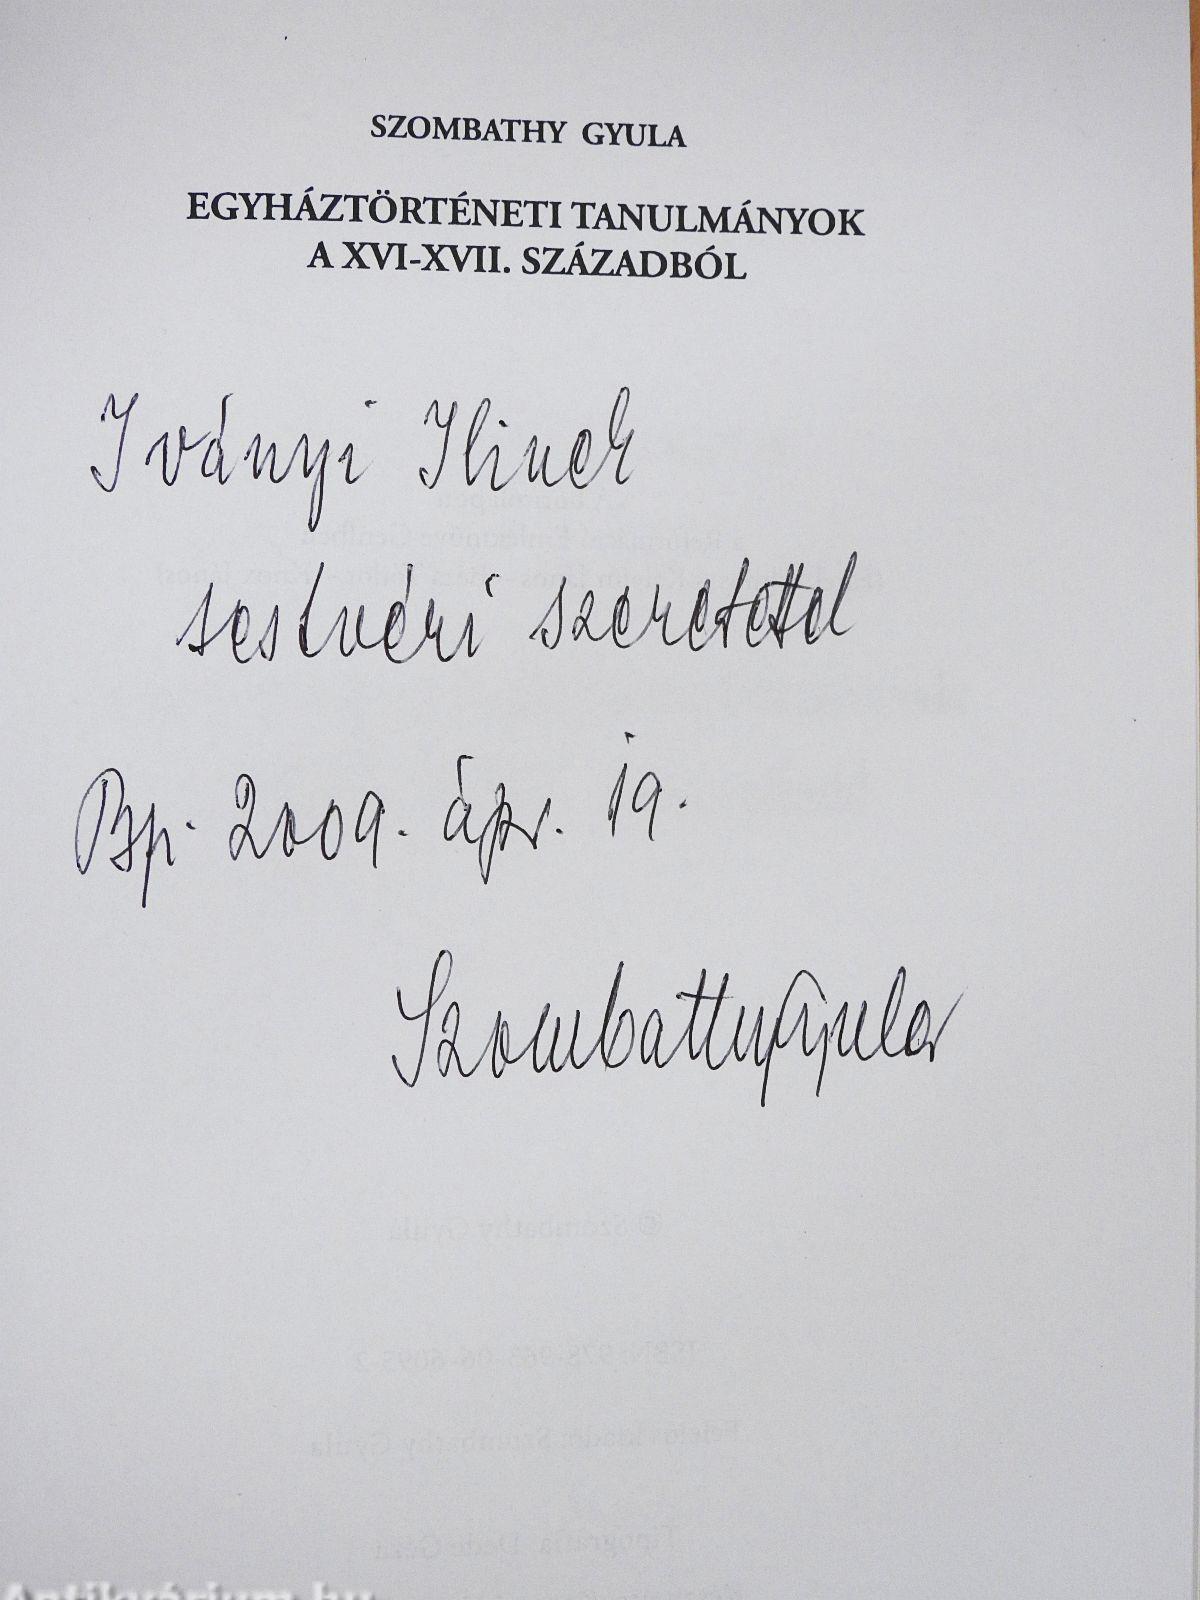 SZOMBATHY GYULA
EGYHÁZTÖRTÉNETI TANULMÁNYOK
A XVI-XVII. SZÁZADBÓL
Iványi Ilinek
testvéri szeretettel
Bp. 2009. ápr. 19.
Szombathy Gyula
© Szombathy Gyula
Felelős kiadó: Szombathy Gyula
Antikvárium.hu